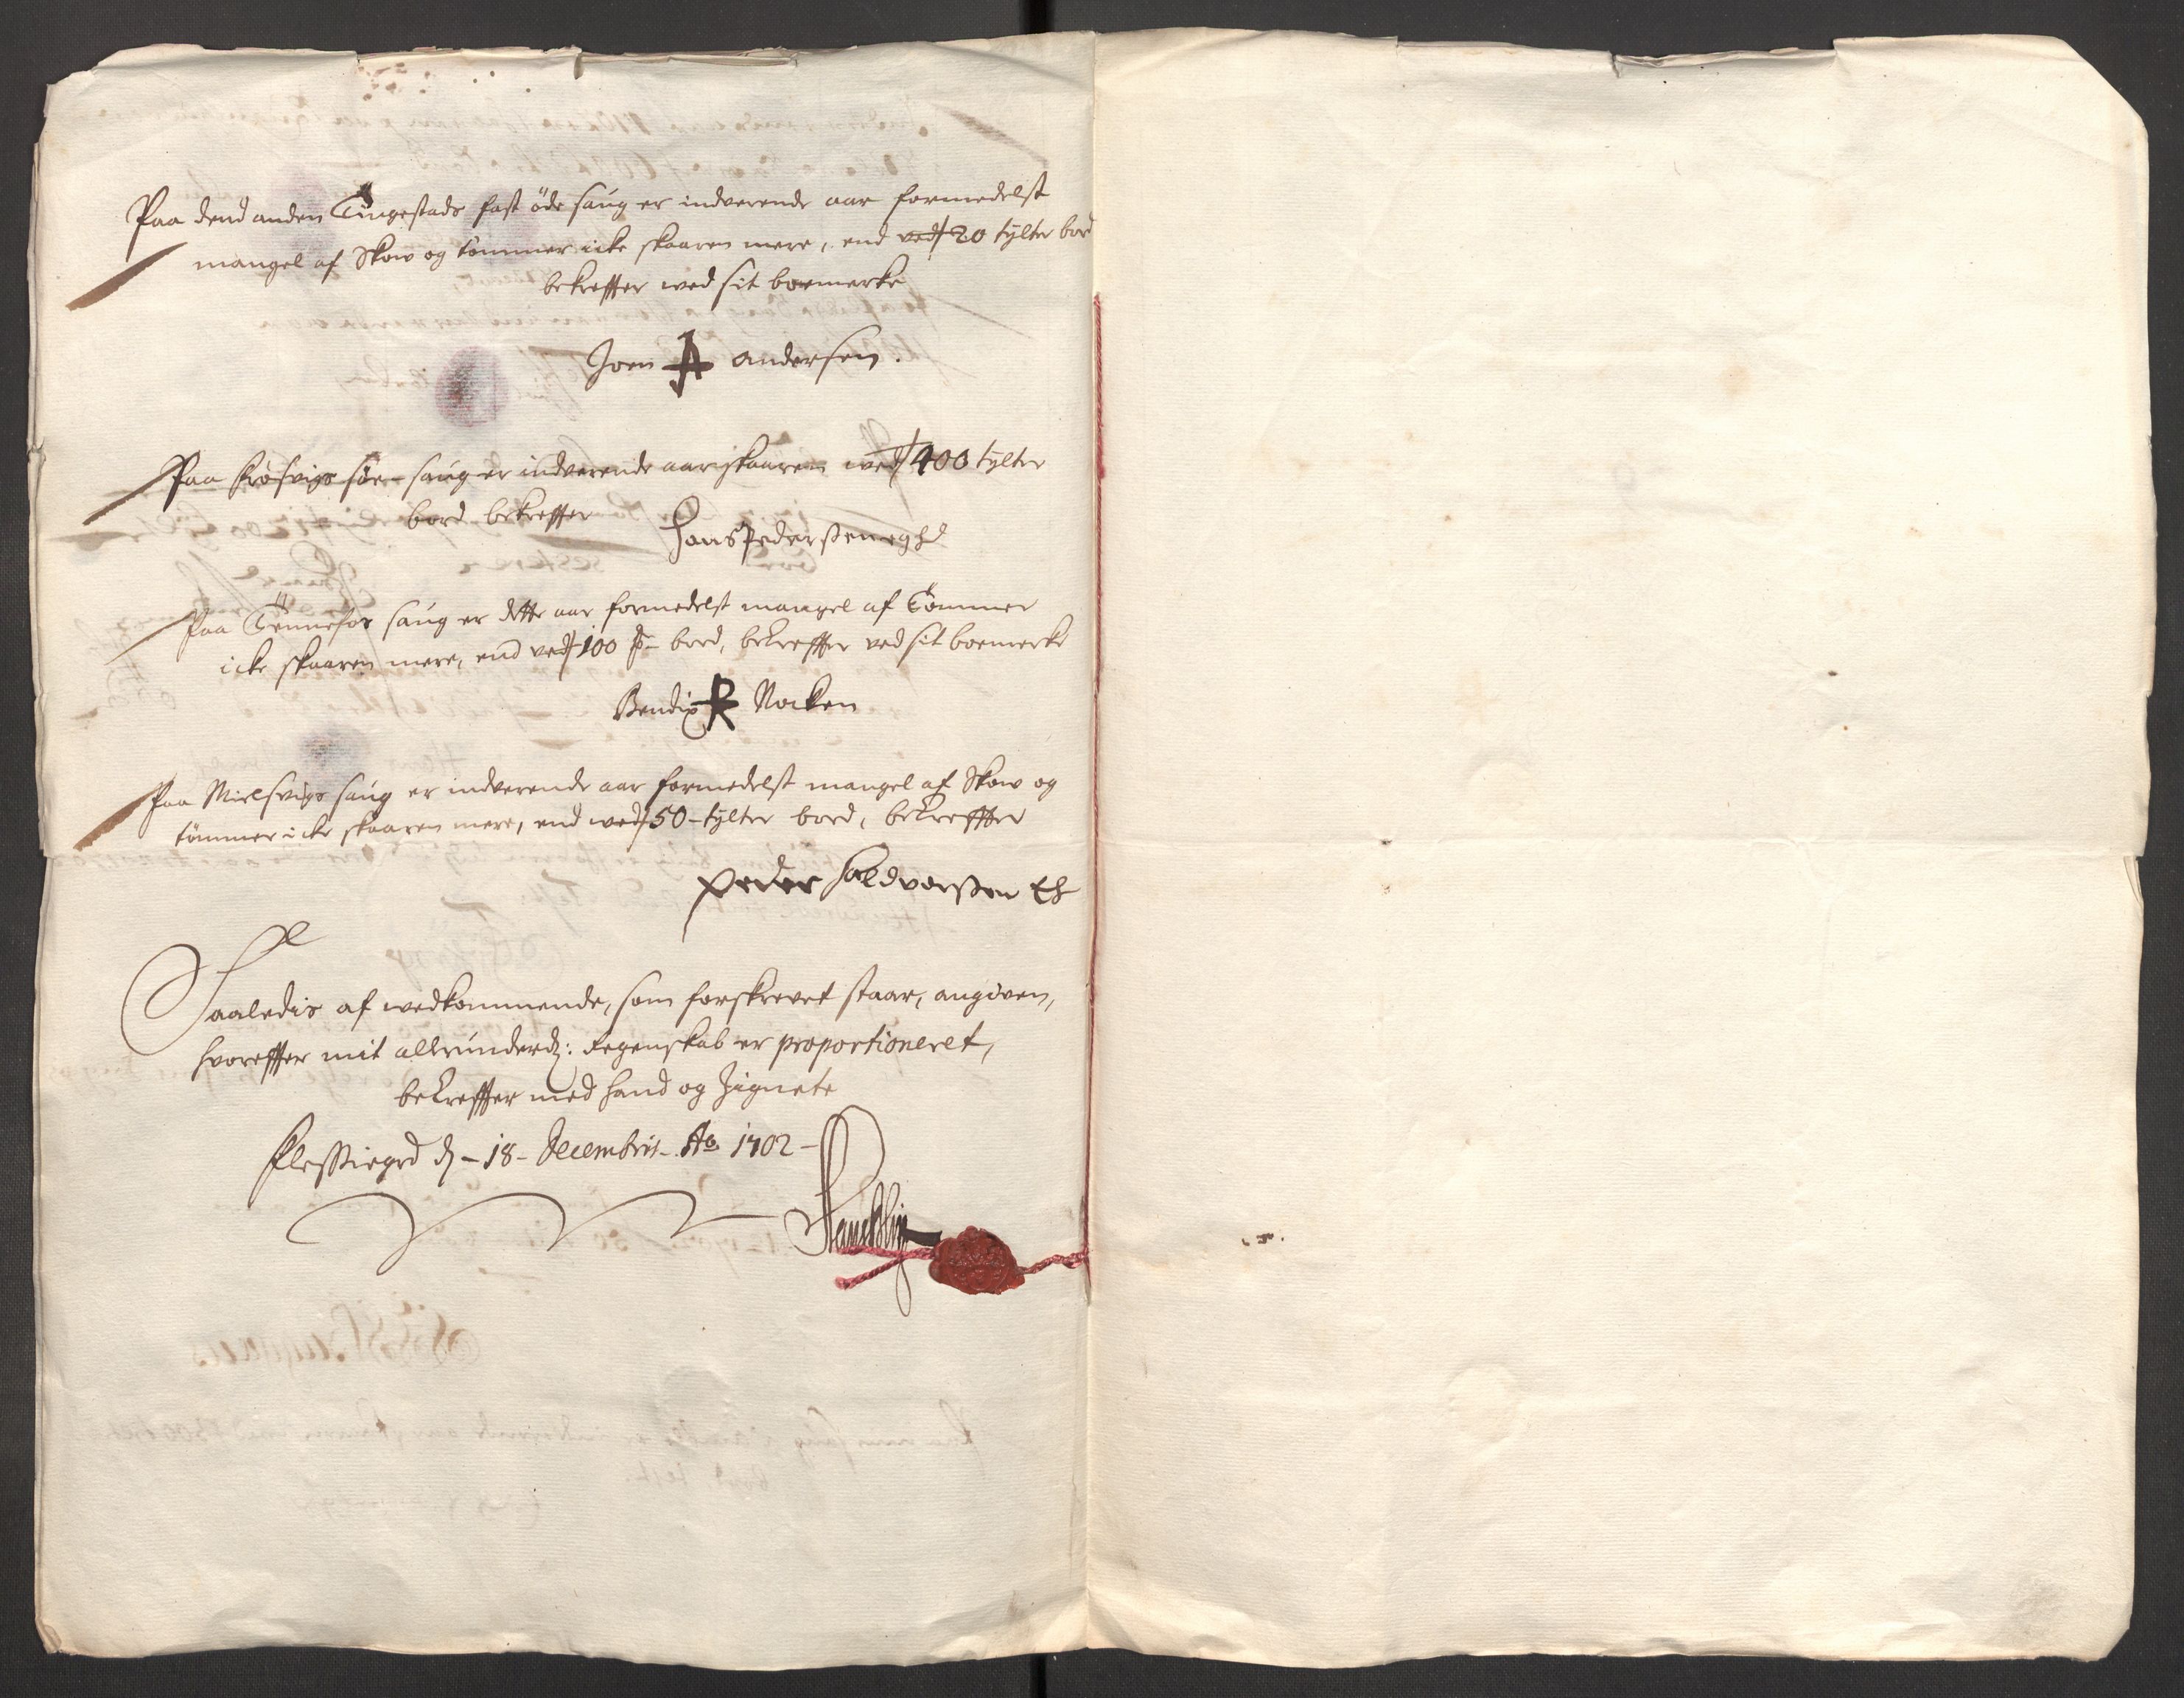 Paa dend anden Tingestads fast öde saug er indverende aar formedelst
mangel af Skow og tömmer icke skaaren mere, end ved 20 tylter bord
bekreffter med sit boemerke
Joen A andersen.
Paa Krosvigs söe-saug er indverende aar skaaren wed 400 tylter
bord bekreffter
Hans Pederßen egh
Paa Tennefos saug er dette aar formedelst mangel af Tömmer
icke skaaren mere, end ved 100 bord, bekreffter ved sit boemerke
Bendix R Nocken
Paa Mielsvigs saug er indverende aar formedelst mangel af Skow og
tömmer icke skaaren mere, end wed 50-tylter bord, bekreffter
Peder Haldvorßen Eh
Saaledis af wedkommende, som forskrevet staar, angiven,
hvoreffter mit allerunderd: Regenskab er proportioneret,
bekreffter med Hand og Zignete
d - 18 - Decembris - Ao 1702 -